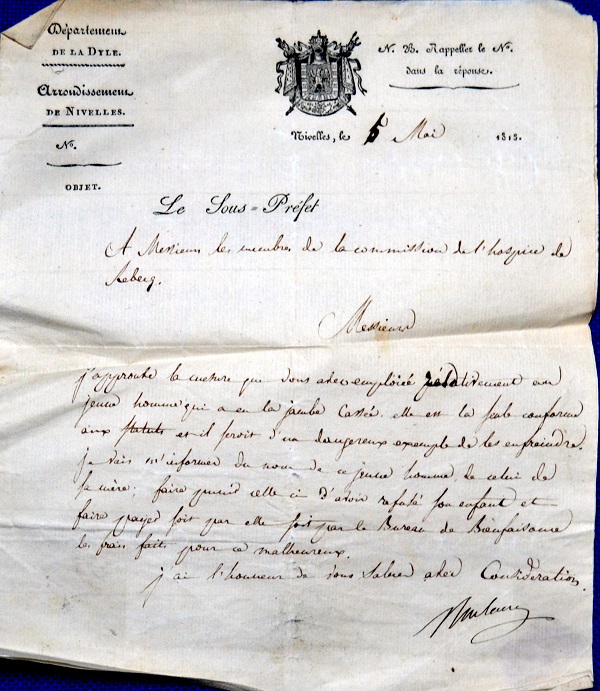 Département
DE LA DYLE.
Arrondissement
DE NIVELLES.
N.º
OBJET.
N. B. Rappeller le N.º
dans la réponse.
Nivelles, le 5 Mai 1813.
Le Sous-Préfet
A Messieurs les membres de la commission de l'hospice de
Rebecq.
Messieurs
j'approuve la mesure que vous avez emploiée rélativement au
jeune homme qui a eu la jambe cassée. elle est la seule conforme
aux statuts et il seroit d'un dangereux exemple de les enfreindre.
je vais m'informer du nom de ce jeune homme, de celui de
sa mère; faire punir celle ci d'avoir refusé son enfant et
faire payer soit par elle soit par le Bureau de Bienfaisance
les frais faits pour ce malheureux.
j'ai l'honneur de vous saluer avec Considération.